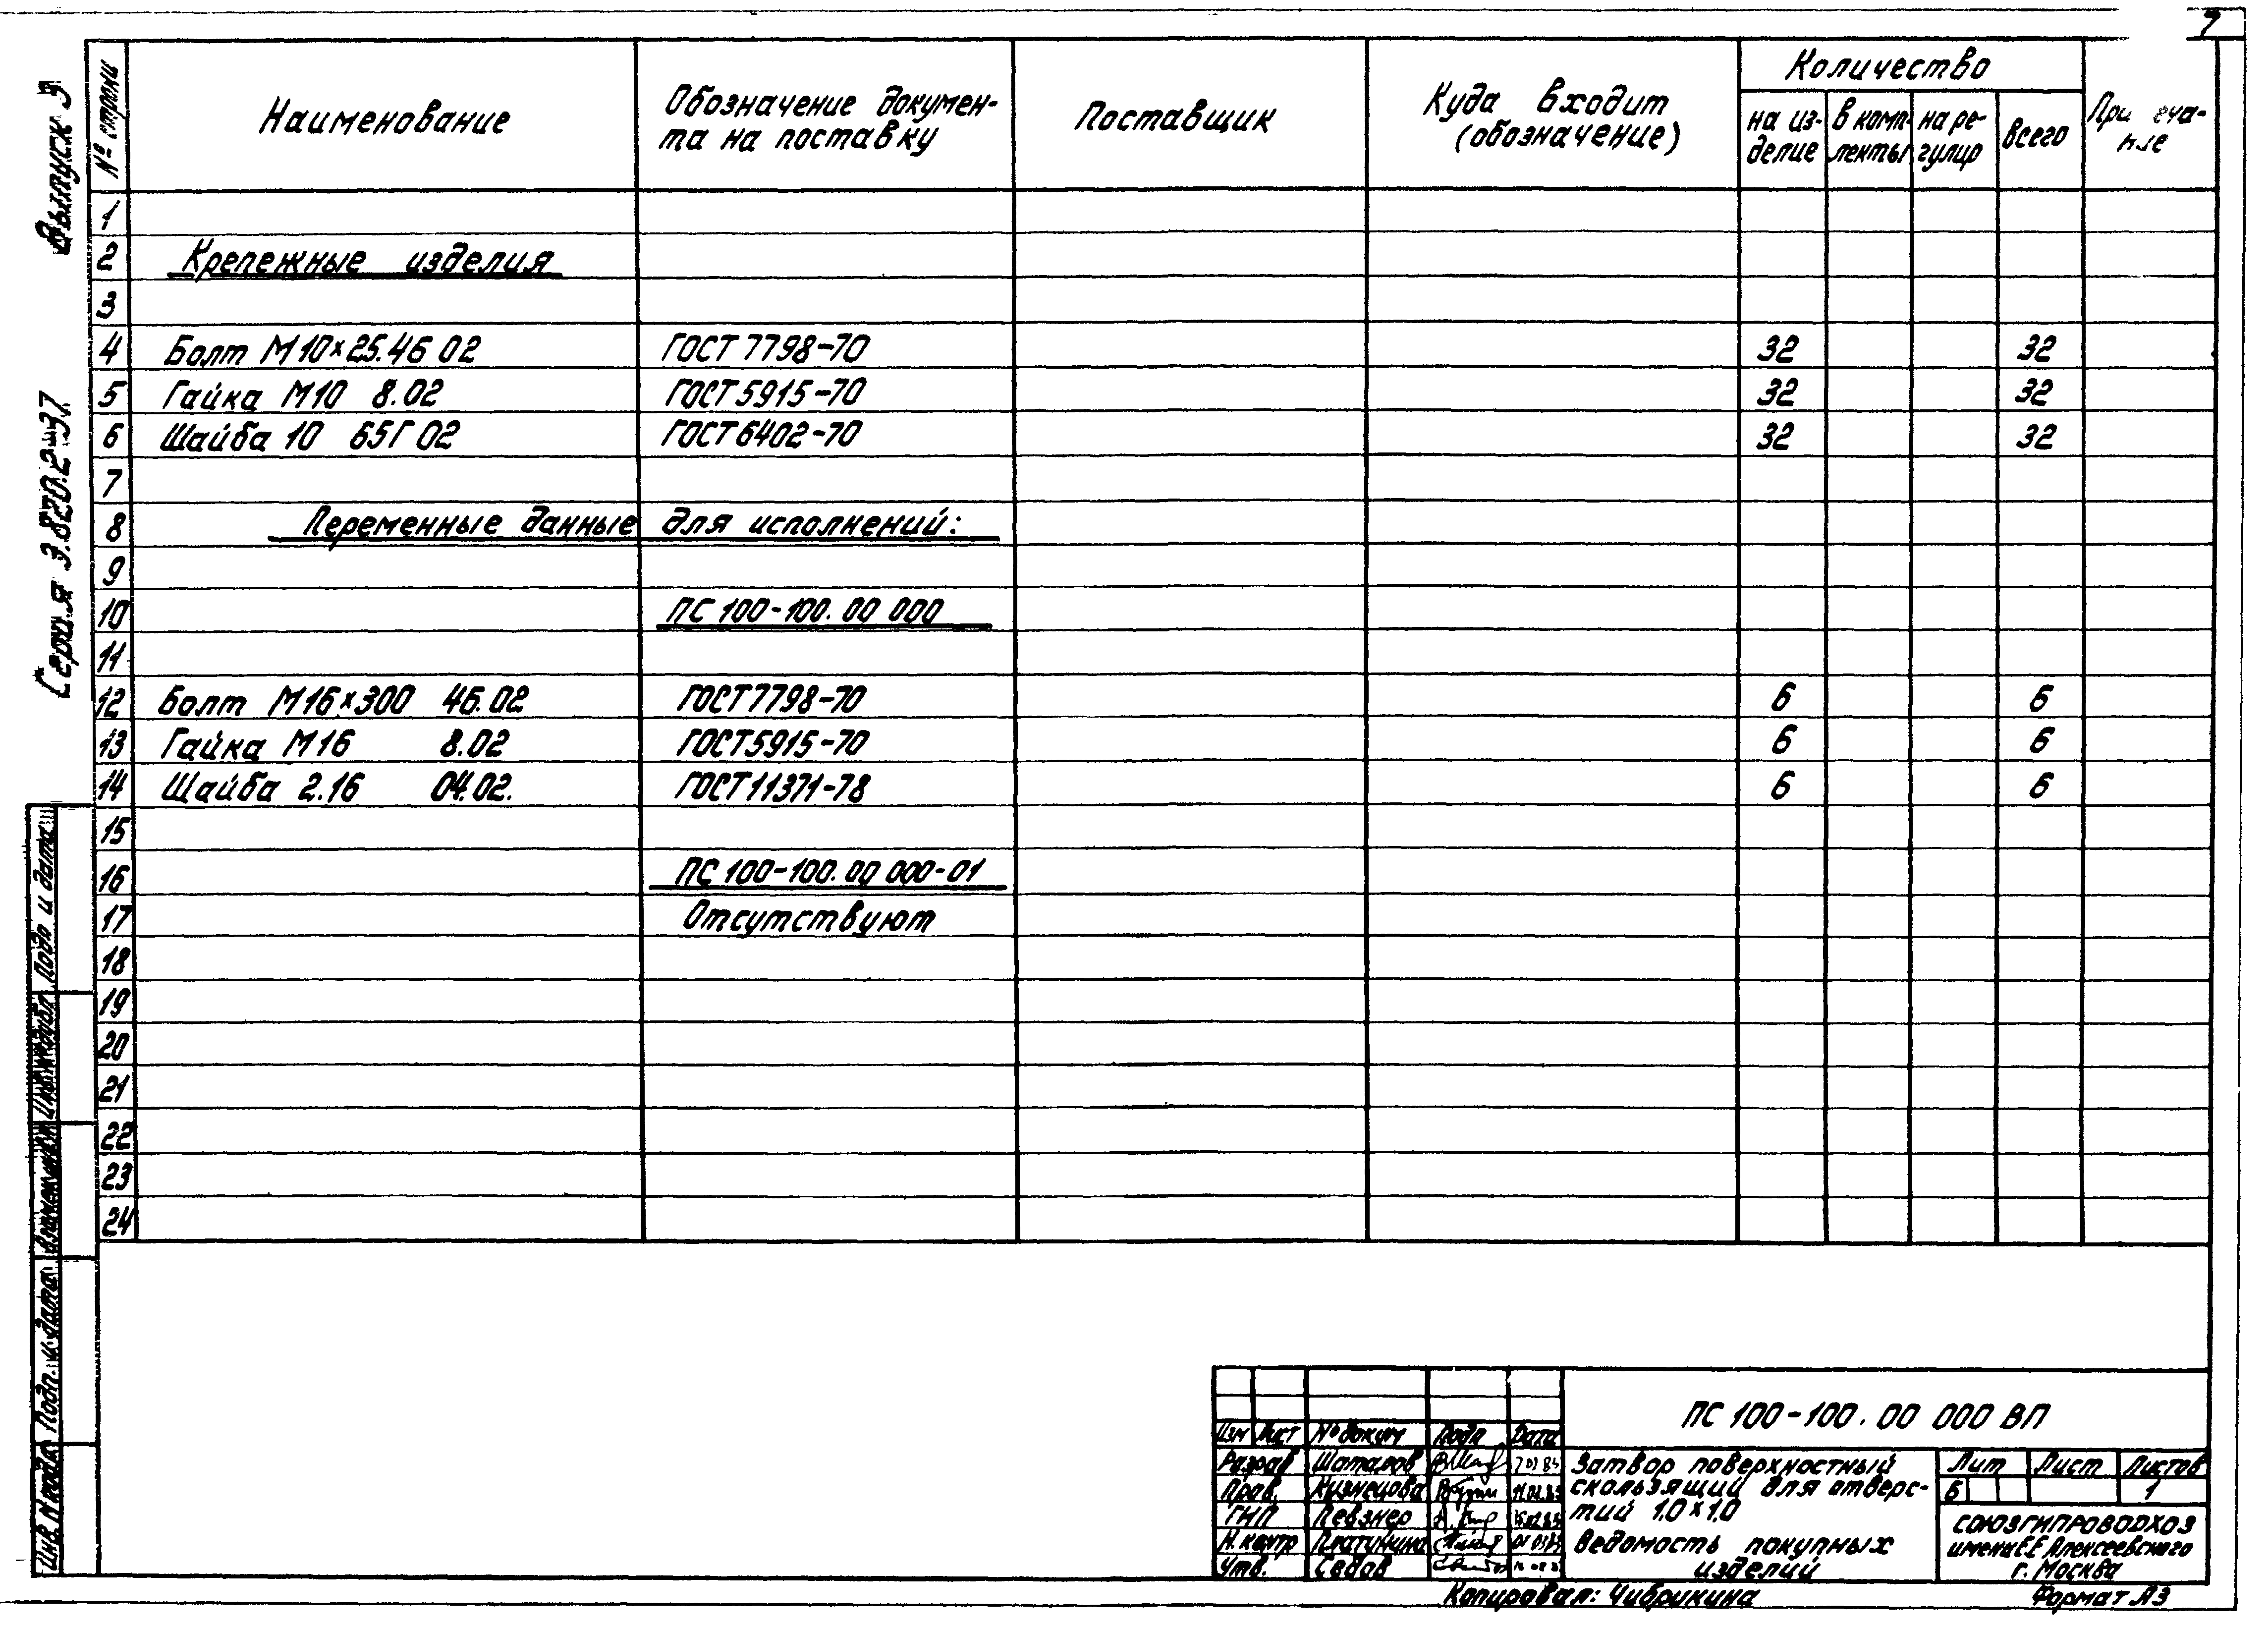 7
Выпуск 3
Серия 3.820.2-37.
№ строки
Наименование
Обозначение докумен-
та на поставку
Поставщик
Куда входит
(обозначение)
Количество
на из-
делие
в комп-
лекты
на ре-
гулир
всего
1
2 Крепежные изделия
3
4 Болт М10×25.46 02 ГОСТ 7798-70 32 32
5 Гайка М10 8.02 ГОСТ 5915-70 32 32
6 Шайба 10 65Г 02 ГОСТ 6402-70 32 32
7
8 Переменные данные для исполнений:
9
10 ПС 100-100.00 000
11
12 Болт М16×300 46.02 ГОСТ 7798-70 6 6
13 Гайка М16 8.02 ГОСТ 5915-70 6 6
14 Шайба 2.16 04.02. ГОСТ 11371-78 6 6
15
16 ПС 100-100.00 000-01
17 Отсутствуют
18
19
20
21
22
23
24
Подп и дата
Подп. и дата
Инв. № подл
ПС 100-100.00 000 ВП
Изм Лист № докум Подп Дата
Разраб Шаталов
Пров. Кузнецова
ГИП Певзнер
Н. контр Платунина
Утв. Седов
Затвор поверхностный
скользящий для отверс-
тий 1,0×1,0
Ведомость покупных
изделий
Лит Лист Листов
Б 1
СОЮЗГИПРОВОДХОЗ
имени Е.Е Алексеевского
г. Москва
Копировал: Чибрикина
Формат А3